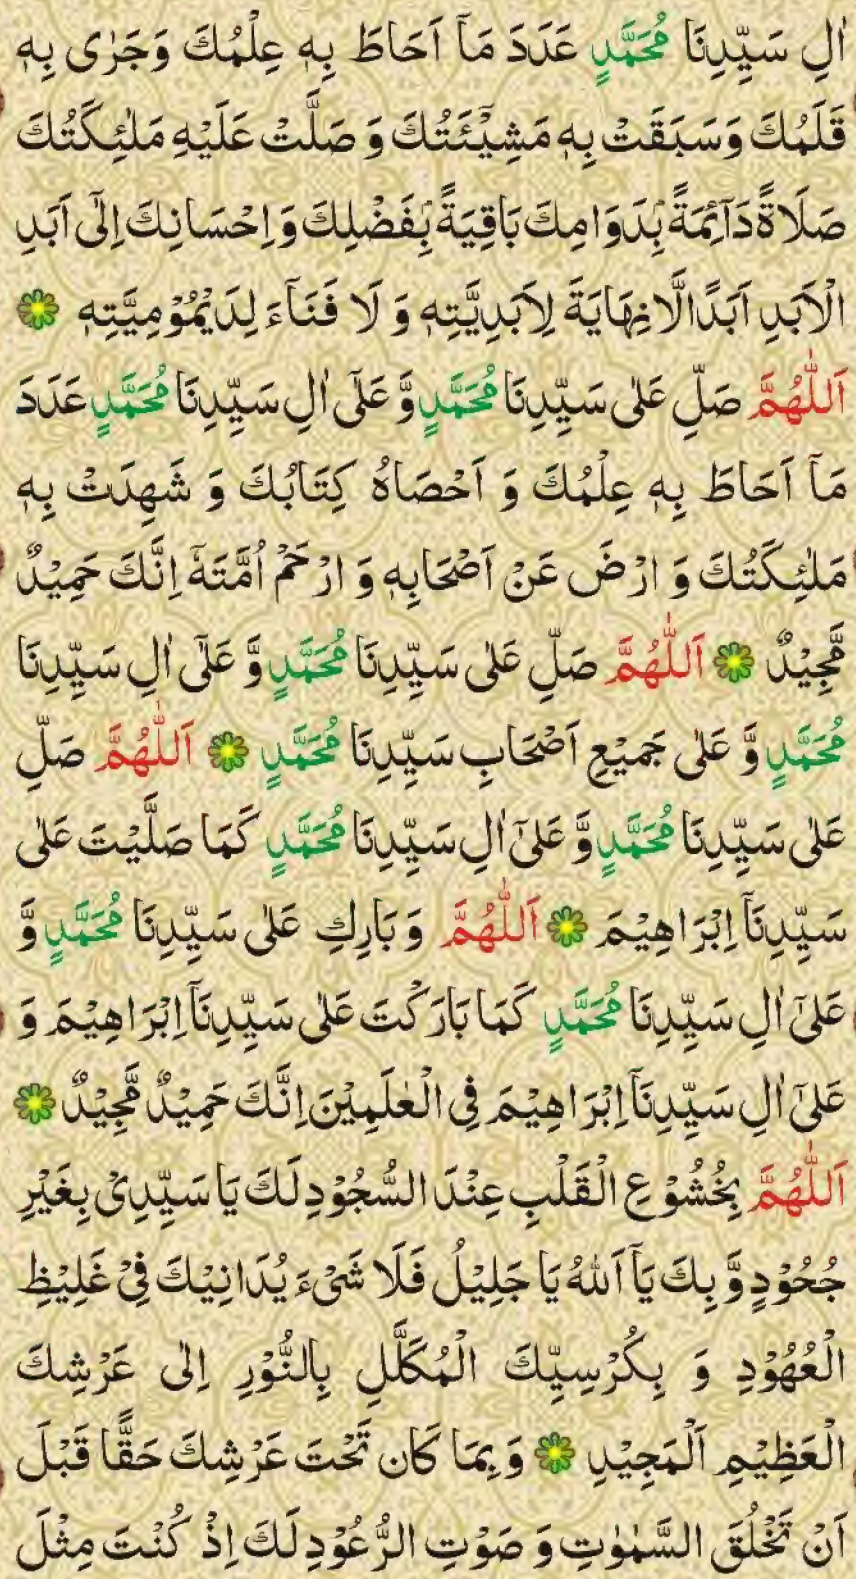 اٰلِ سَيِّدِنَا مُحَمَّدٍ عَدَدَ مَآ اَحَاطَ بِهٖ عِلْمُكَ وَجَرٰى بِهٖ
قَلَمُكَ وَسَبَقَتْ بِهٖ مَشِيْٓئَتُكَ وَ صَلَّتْ عَلَيْهِ مَلٰٓئِكَتُكَ
صَلَاةً دَآئِمَةً بِۢدَوَامِكَ بَاقِيَةً بِۢفَضْلِكَ وَاِحْسَانِكَ اِلٰٓى اَبَدِ
الْاَبَدِ اَبَدًا لَّا نِهَايَةَ لِاَبَدِيَّتِهٖ وَ لَا فَنَآءَ لِدَيْمُوْمِيَّتِهٖ
اَللّٰهُمَّ صَلِّ عَلٰى سَيِّدِنَا مُحَمَّدٍ وَّ عَلٰٓى اٰلِ سَيِّدِنَا مُحَمَّدٍ عَدَدَ
مَآ اَحَاطَ بِهٖ عِلْمُكَ وَ اَحْصَاهُ كِتَابُكَ وَ شَهِدَتْ بِهٖ
مَلٰٓئِكَتُكَ وَ ارْضَ عَنْ اَصْحَابِهٖ وَ ارْحَمْ اُمَّتَهٗٓ اِنَّكَ حَمِيْدٌ
مَّجِيْدٌ اَللّٰهُمَّ صَلِّ عَلٰى سَيِّدِنَا مُحَمَّدٍ وَّ عَلٰٓى اٰلِ سَيِّدِنَا
مُحَمَّدٍ وَّ عَلٰى جَمِيْعِ اَصْحَابِ سَيِّدِنَا مُحَمَّدٍ اَللّٰهُمَّ صَلِّ
عَلٰى سَيِّدِنَا مُحَمَّدٍ وَّ عَلٰٓى اٰلِ سَيِّدِنَا مُحَمَّدٍ كَمَا صَلَّيْتَ عَلٰى
سَيِّدِنَآ اِبْرَاهِيْمَ اَللّٰهُمَّ وَ بَارِكِ عَلٰى سَيِّدِنَا مُحَمَّدٍ وَّ
عَلٰٓى اٰلِ سَيِّدِنَا مُحَمَّدٍ كَمَا بَارَكْتَ عَلٰى سَيِّدِنَآ اِبْرَاهِيْمَ وَ
عَلٰٓى اٰلِ سَيِّدِنَآ اِبْرَاهِيْمَ فِى الْعٰلَمِيْنَ اِنَّكَ حَمِيْدٌ مَّجِيْدٌ
اَللّٰهُمَّ بِخُشُوْعِ الْقَلْبِ عِنْدَ السُّجُوْدِ لَكَ يَا سَيِّدِىْ بِغَيْرِ
جُحُوْدٍ وَّ بِكَ يَآ اَللّٰهُ يَا جَلِيْلُ فَلَا شَىْءَ يُدَانِيْكَ فِىْ غَلِيْظِ
الْعُهُوْدِ وَ بِكُرْسِيِّكَ الْمُكَلَّلِ بِالنُّوْرِ اِلٰى عَرْشِكَ
الْعَظِيْمِ اَلْمَجِيْدِ وَ بِمَا كَان تَحْتَ عَرْشِكَ حَقًّا قَبْلَ
اَنْ تَخْلُقَ السَّمٰوٰتِ وَ صَوْتِ الرُّعُوْدِ لَكَ اِذْ كُنْتَ مِثْلَ